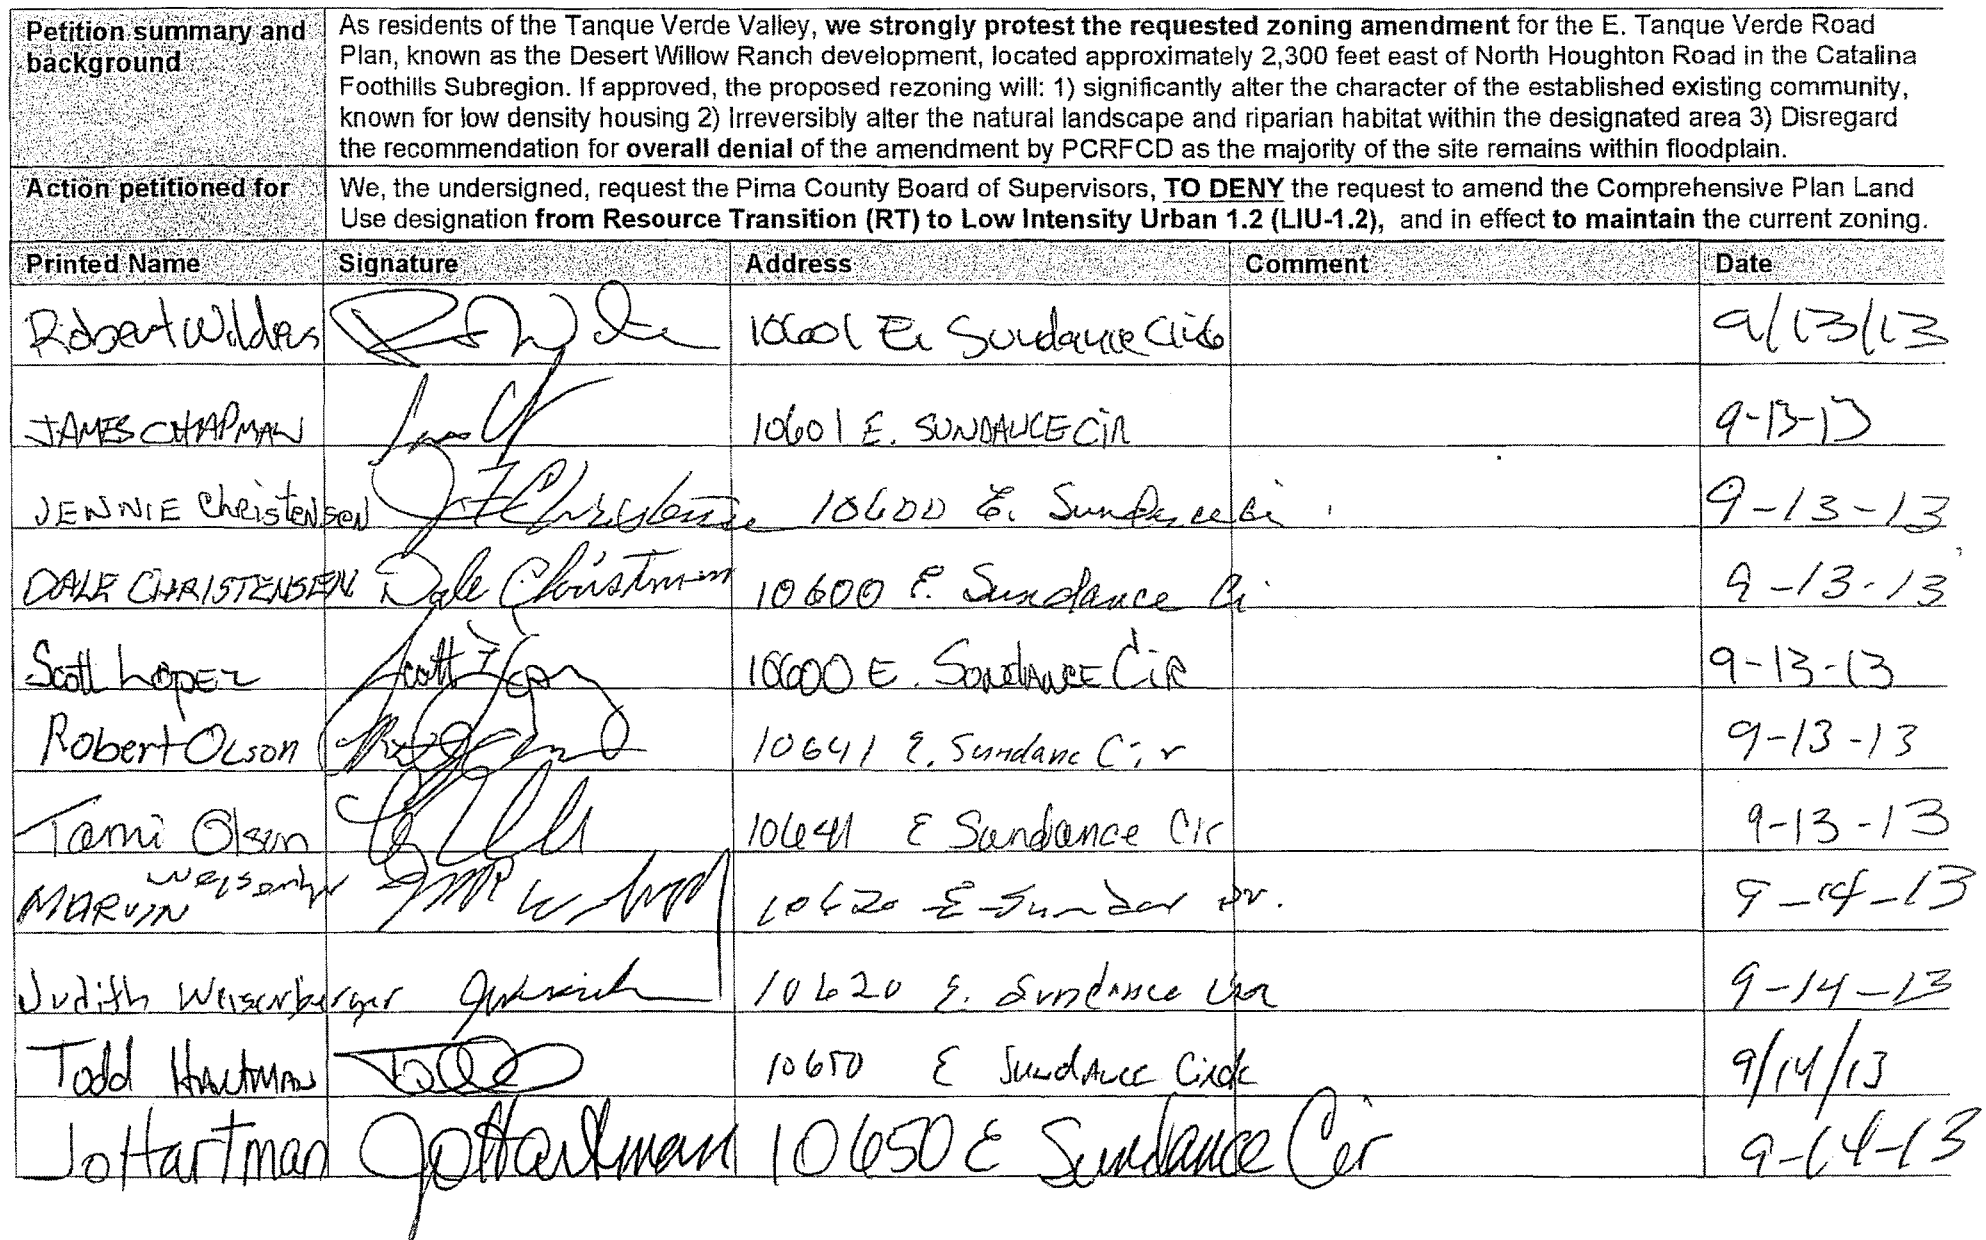 Petition summary and background
As residents of the Tanque Verde Valley, we strongly protest the requested zoning amendment for the E. Tanque Verde Road
Plan, known as the Desert Willow Ranch development, located approximately 2,300 feet east of North Houghton Road in the Catalina
Foothills Subregion. If approved, the proposed rezoning will: 1) significantly alter the character of the established existing community,
known for low density housing 2) Irreversibly alter the natural landscape and riparian habitat within the designated area 3) Disregard
the recommendation for overall denial of the amendment by PCRFCD as the majority of the site remains within floodplain.
Action petitioned for
We, the undersigned, request the Pima County Board of Supervisors, TO DENY the request to amend the Comprehensive Plan Land
Use designation from Resource Transition (RT) to Low Intensity Urban 1.2 (LIU-1.2), and in effect to maintain the current zoning.
Printed Name Signature Address Comment Date
Robert 10601 E. Sundance 9/13/13
JAMES CHAPMAN 10601 E. SUNDANCE CIR 9-13-13
JENNIE Christensen 10600 E. Sundance Ci 9-13-13
DALE CHRISTENSEN Dale Christensen 10600 E. Sundance Ci 9-13-13
Scott Lopez Scott 10600 E. SUNDANCE CIR 9-13-13
Robert Olson 10641 E. Sundanc Cir 9-13-13
Tami Olsen 10641 E Sundance Cir 9-13-13
MARVIN 10620 E 9-14-13
Judith Weisenberger 10620 E. Sundance 9-14-13
Todd HARTMAN 10650 E Sundance Circle 9/14/13
Jo Hartman Jo Hartman 10650 E Sundance Cir 9-14-13